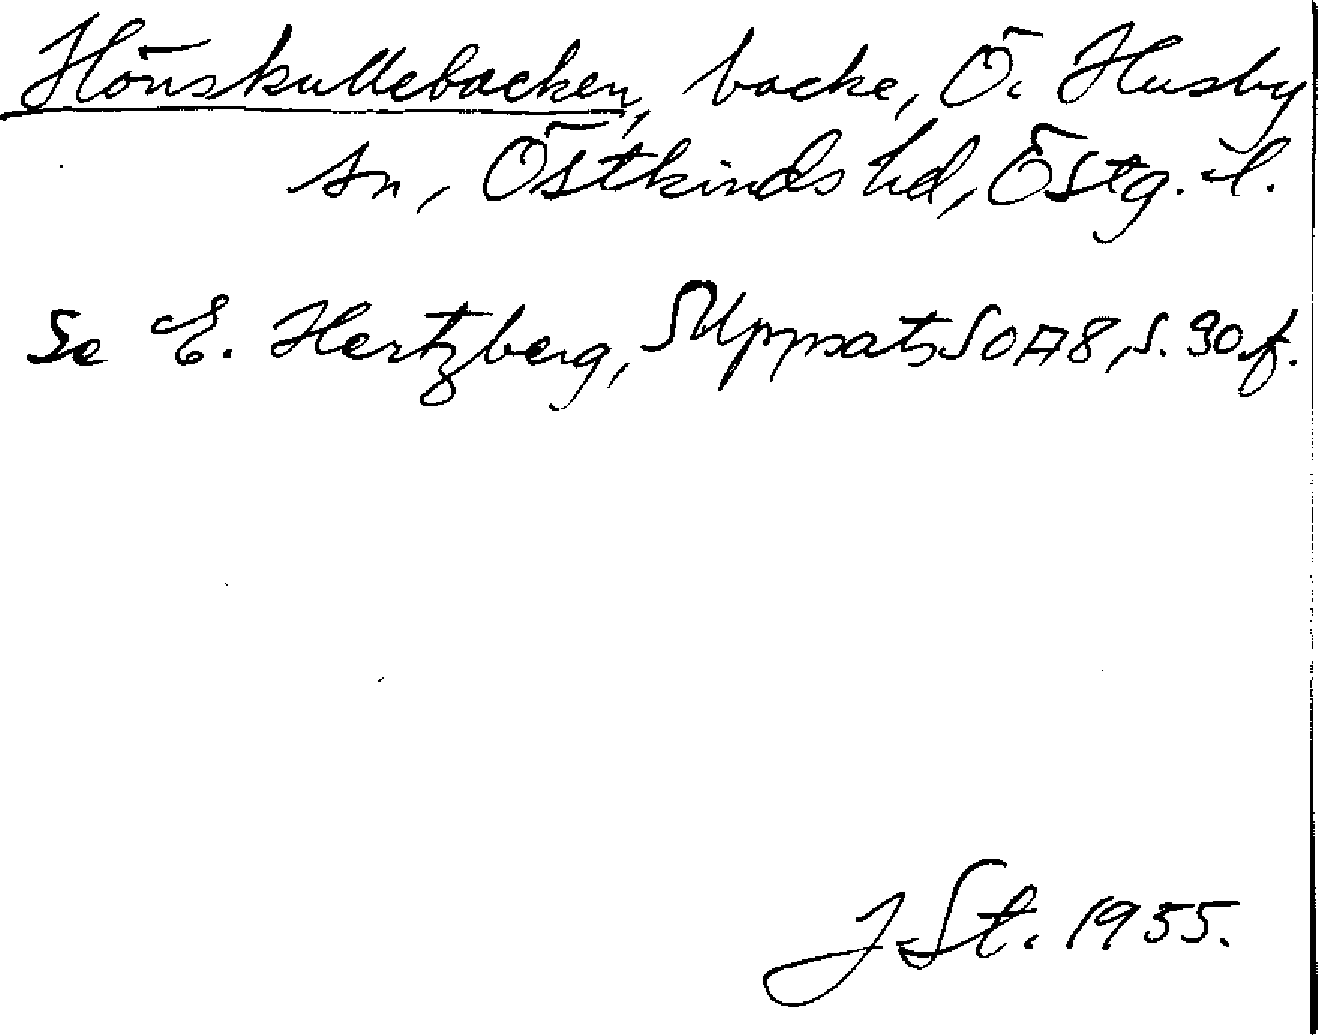 Hönskullebacken, backe, Ö. Husby
sn, Östkinds hd, Östg. l.
Se E. Hertzberg, SUppsats SOA 8, s. 30 f.
J. St. 1955.